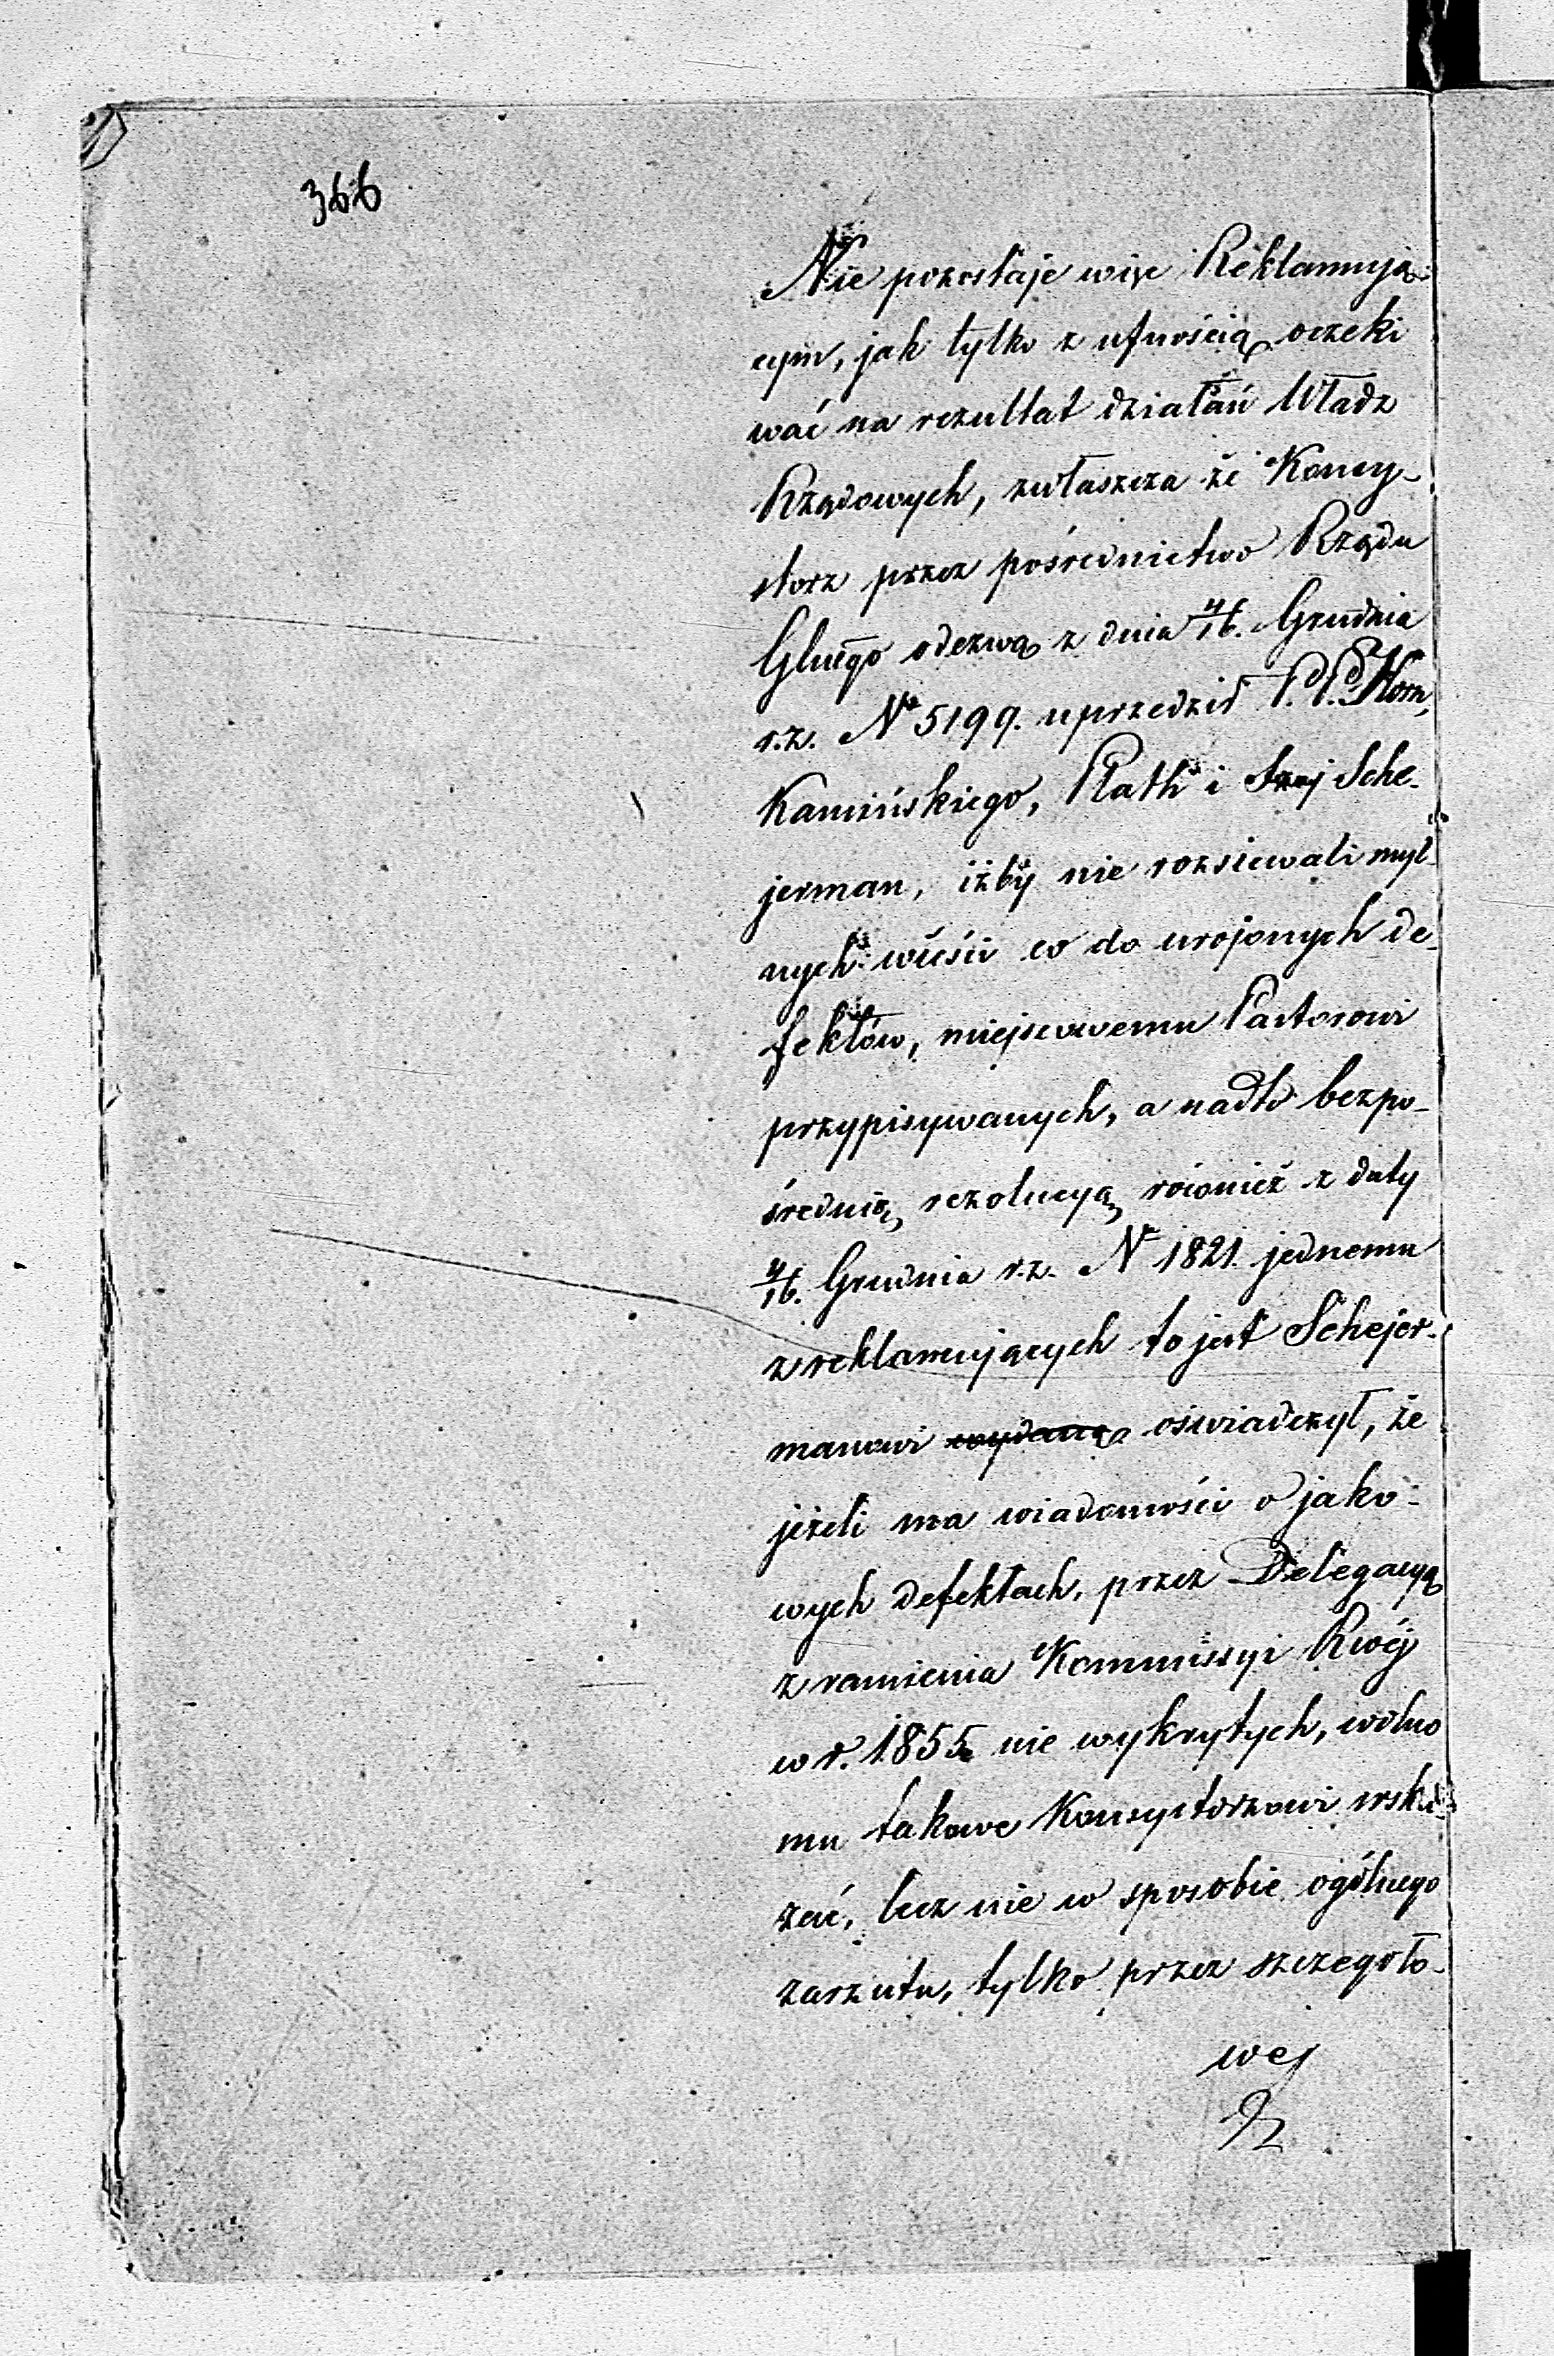 366
Nie pozostaje więc Reklamują
cym, jak tylko z ufnością oczeki
wać na rezultat działań Władz
Rządowych, zwłaszcza że Konsy-
storz przez pośrednictwo Rządu
Glnego odezwą z dnia 4/16. Grudnia
r.z. No 5199. uprzedził P.P. Horn,
Kamińskiego, Rath i Sche-
jerman, iżby nie rozsiewali myl-
nych wieści co do urojonych de-
fektów, miejscowemu Pastorowi
przypisywanych, a nadto bezpo-
średnią rezolucyą również z daty
4/16. Grudnia r.z. No 1821. jednemu
z reklamujących to jest Schejer-
manowi wydaną oświadczył, że
jeżeli ma wiadomości o jako-
wych defektach, przez Delegacyą
z ramienia Kommissyi Rwéj
w r. 1855 nie wykrytych, wolno
mu takowe Konsystorzowi wska-
zać, lecz nie w sposobie ogólnego
zarzutu, tylko przez szczegóło-
wej